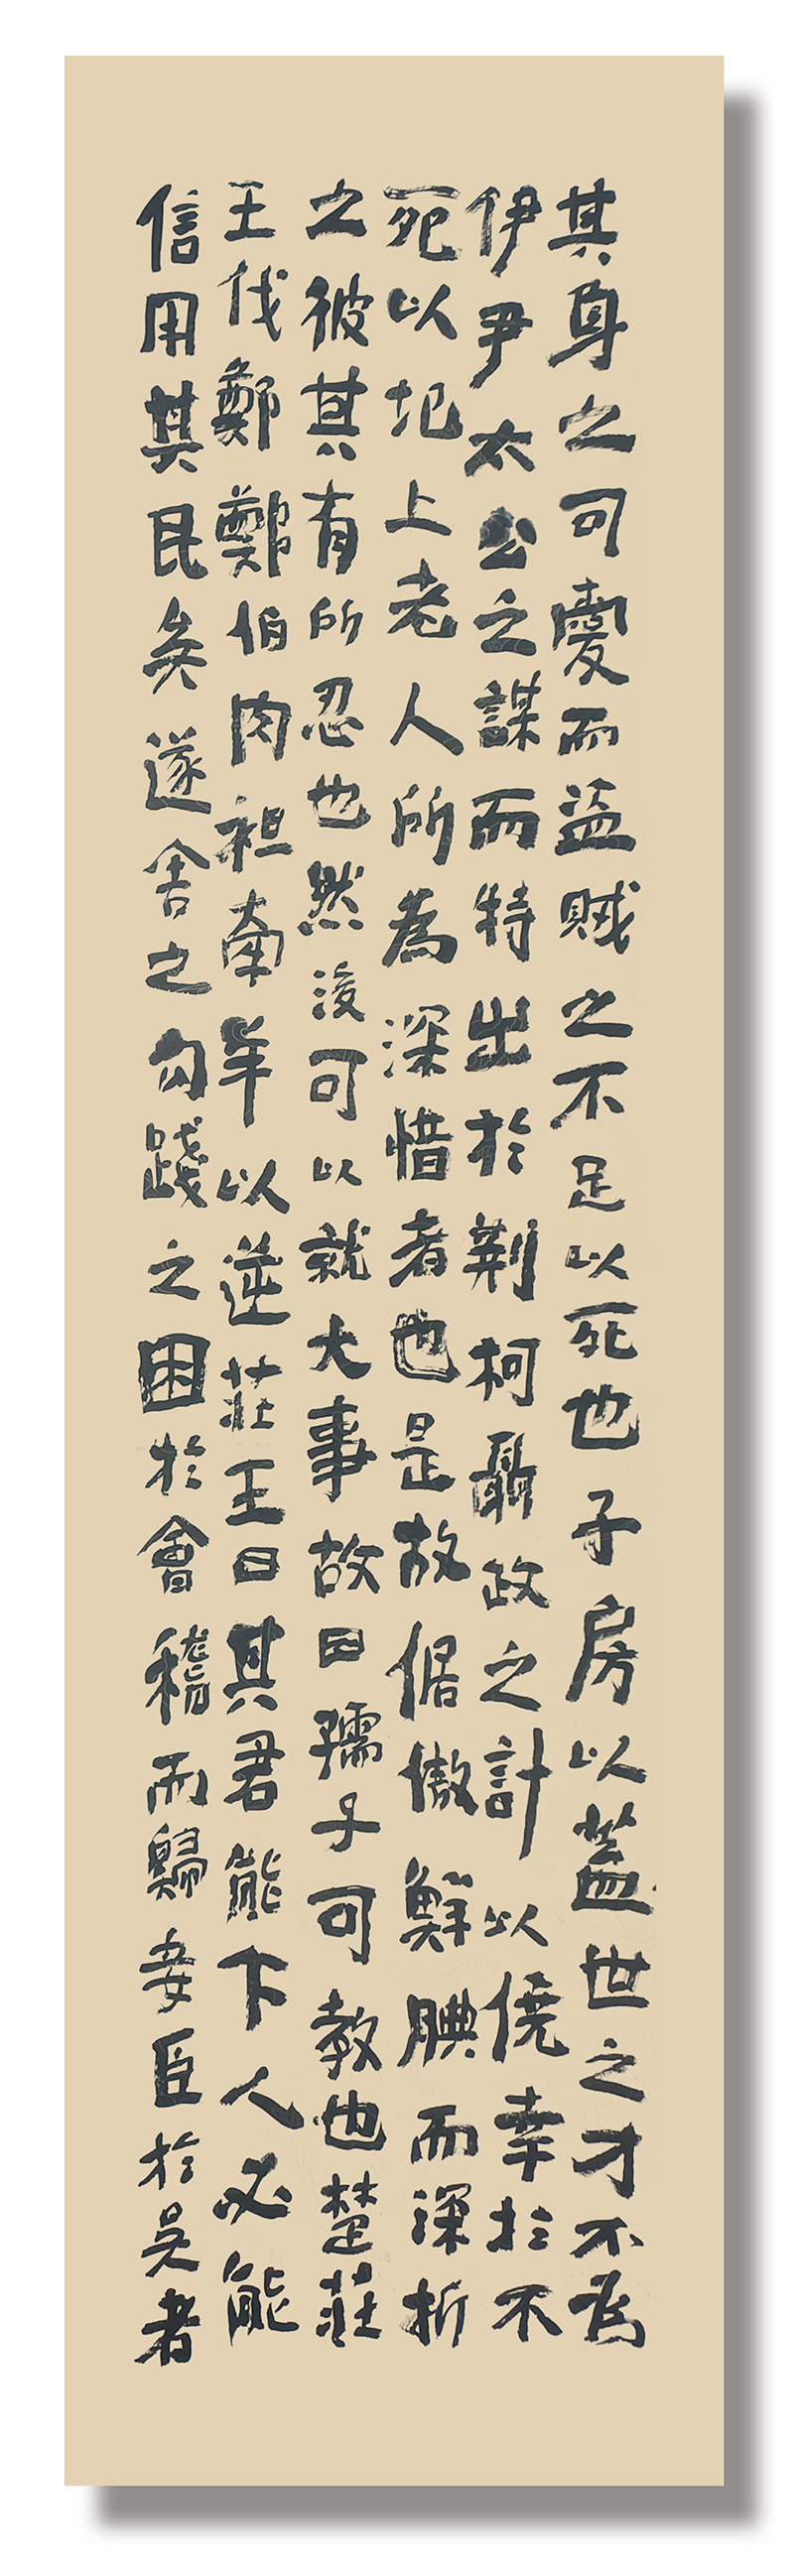 其身之可愛而盜賊之不足以死也子房以蓋世之才不為
伊尹太公之謀而特出於荊柯聶政之計以僥幸於不
死以圯上老人所為深惜者也是故倨傲鮮腆而深折
之彼其有所忍也然後可以就大事故曰孺子可教也楚莊
王伐鄭鄭伯肉袒牽羊以逆莊王曰其君能下人必能
信用其民矣遂舍之勾踐之困於會稽而歸妾臣於吳者